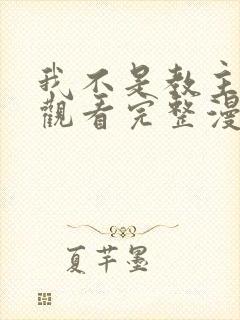 我不是教主
觀看完整漫
夏芊墨